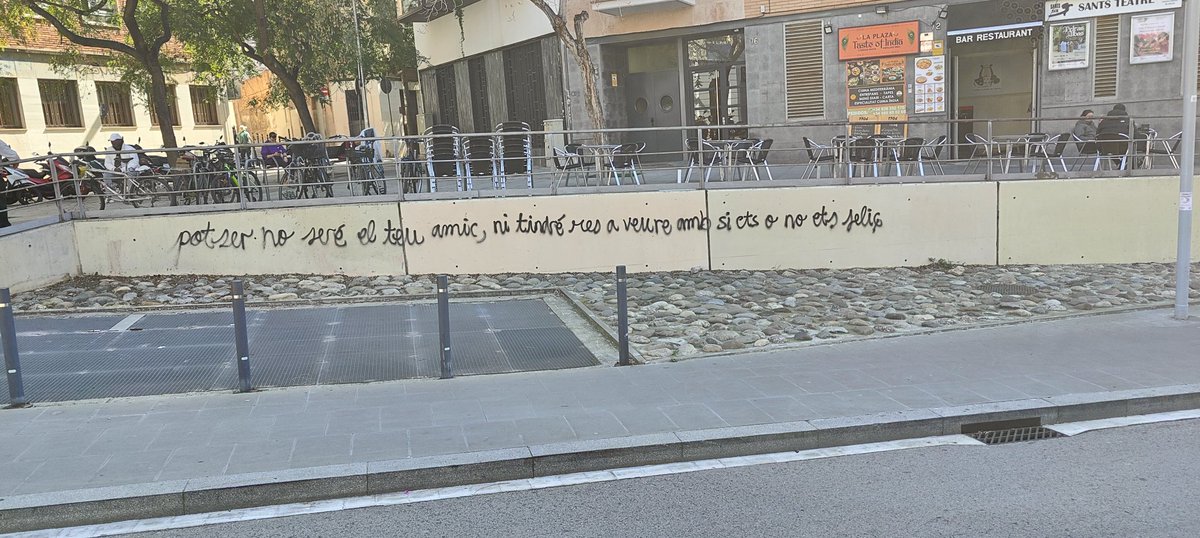 SANTS TEATRE
BAR RESTAURANT
LA PLAZA
Taste of India
potser no seré el teu amic, ni tindré res a veure amb si ets o no ets feliç